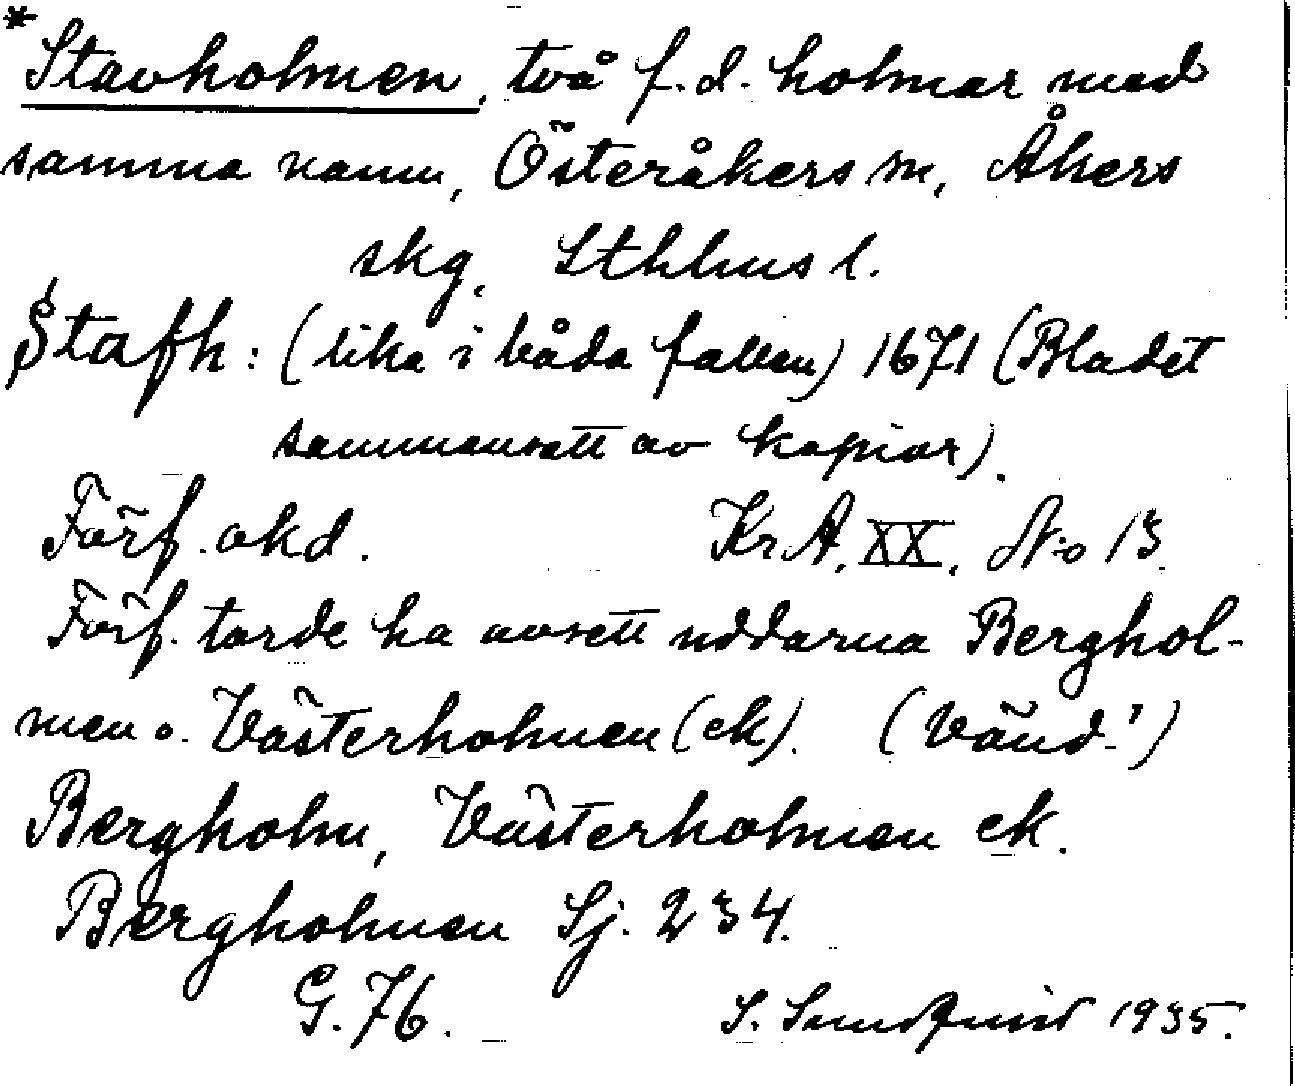 *Stavholmen, två f.d. holmar med
samma namn, Österåkers sn, Åkers
skg, Sthlms l.
Stafh: (lika i båda fallen) 1671 (Bladet
sammansatt av kopior).
Förf. okd. Kr.A. XX, No 13
Förf. torde ha avsett uddarna Berghol-
men o. Västerholmen (ek). (Vänd!)
Bergholm, Västerholmen ek.
Bergholmen Sj. 234.
G. 76. S. Sundquist 1935.